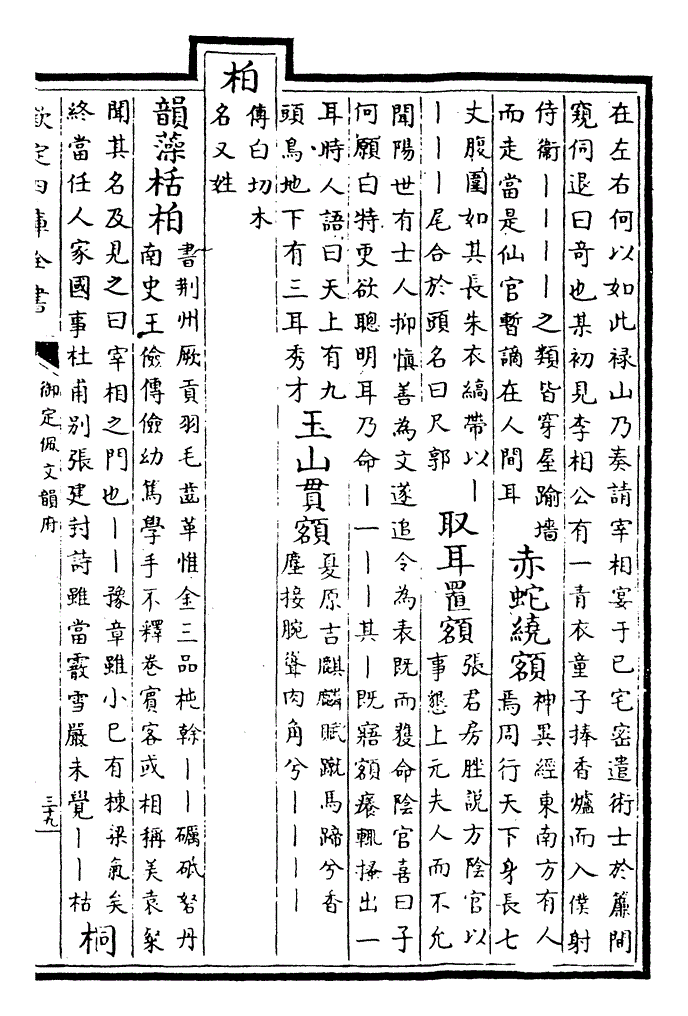 在左右何以如此禄山乃奏請宰相宴于已宅密遣術士於簾間
窺伺退曰奇也某初見李相公有一青衣童子捧香爐而入僕射
侍衛丨丨丨丨之類皆穿屋踰墻
而走當是仙官暫謫在人間耳
赤蛇繞額
神異經東南方有人
焉周行天下身長七
丈腹圍如其長朱衣縞帶以丨
丨丨丨尾合於頭名曰尺郭
取耳置額
張君房脞說方陰官以
事懇上元夫人而不允
聞陽世有士人抑慎善為文遂追令為表既而獲命陰官喜曰子
何願白特更欲聰明耳乃命丨一丨丨其丨既寤額癢輒搔出一
耳時人語曰天上有九
頭鳥地下有三耳秀才
玉山貫額
夏原吉麒麟賦蹴馬蹄兮香
塵接腕聳肉角兮丨丨丨丨
柏
傳白切木
名又姓
韻藻栝柏
書荆州厥貢羽毛齒革惟金三品杶幹丨丨礪砥砮丹
南史王儉傳儉幼篤學手不釋卷賓客或相稱美袁粲
聞其名及見之曰宰相之門也丨丨豫章雖小已有棟梁氣矣
終當任人家國事杜甫別張建封詩雖當霰雪嚴未覺丨丨枯
桐
欽定四庫全書
御定佩文韻府
三十九